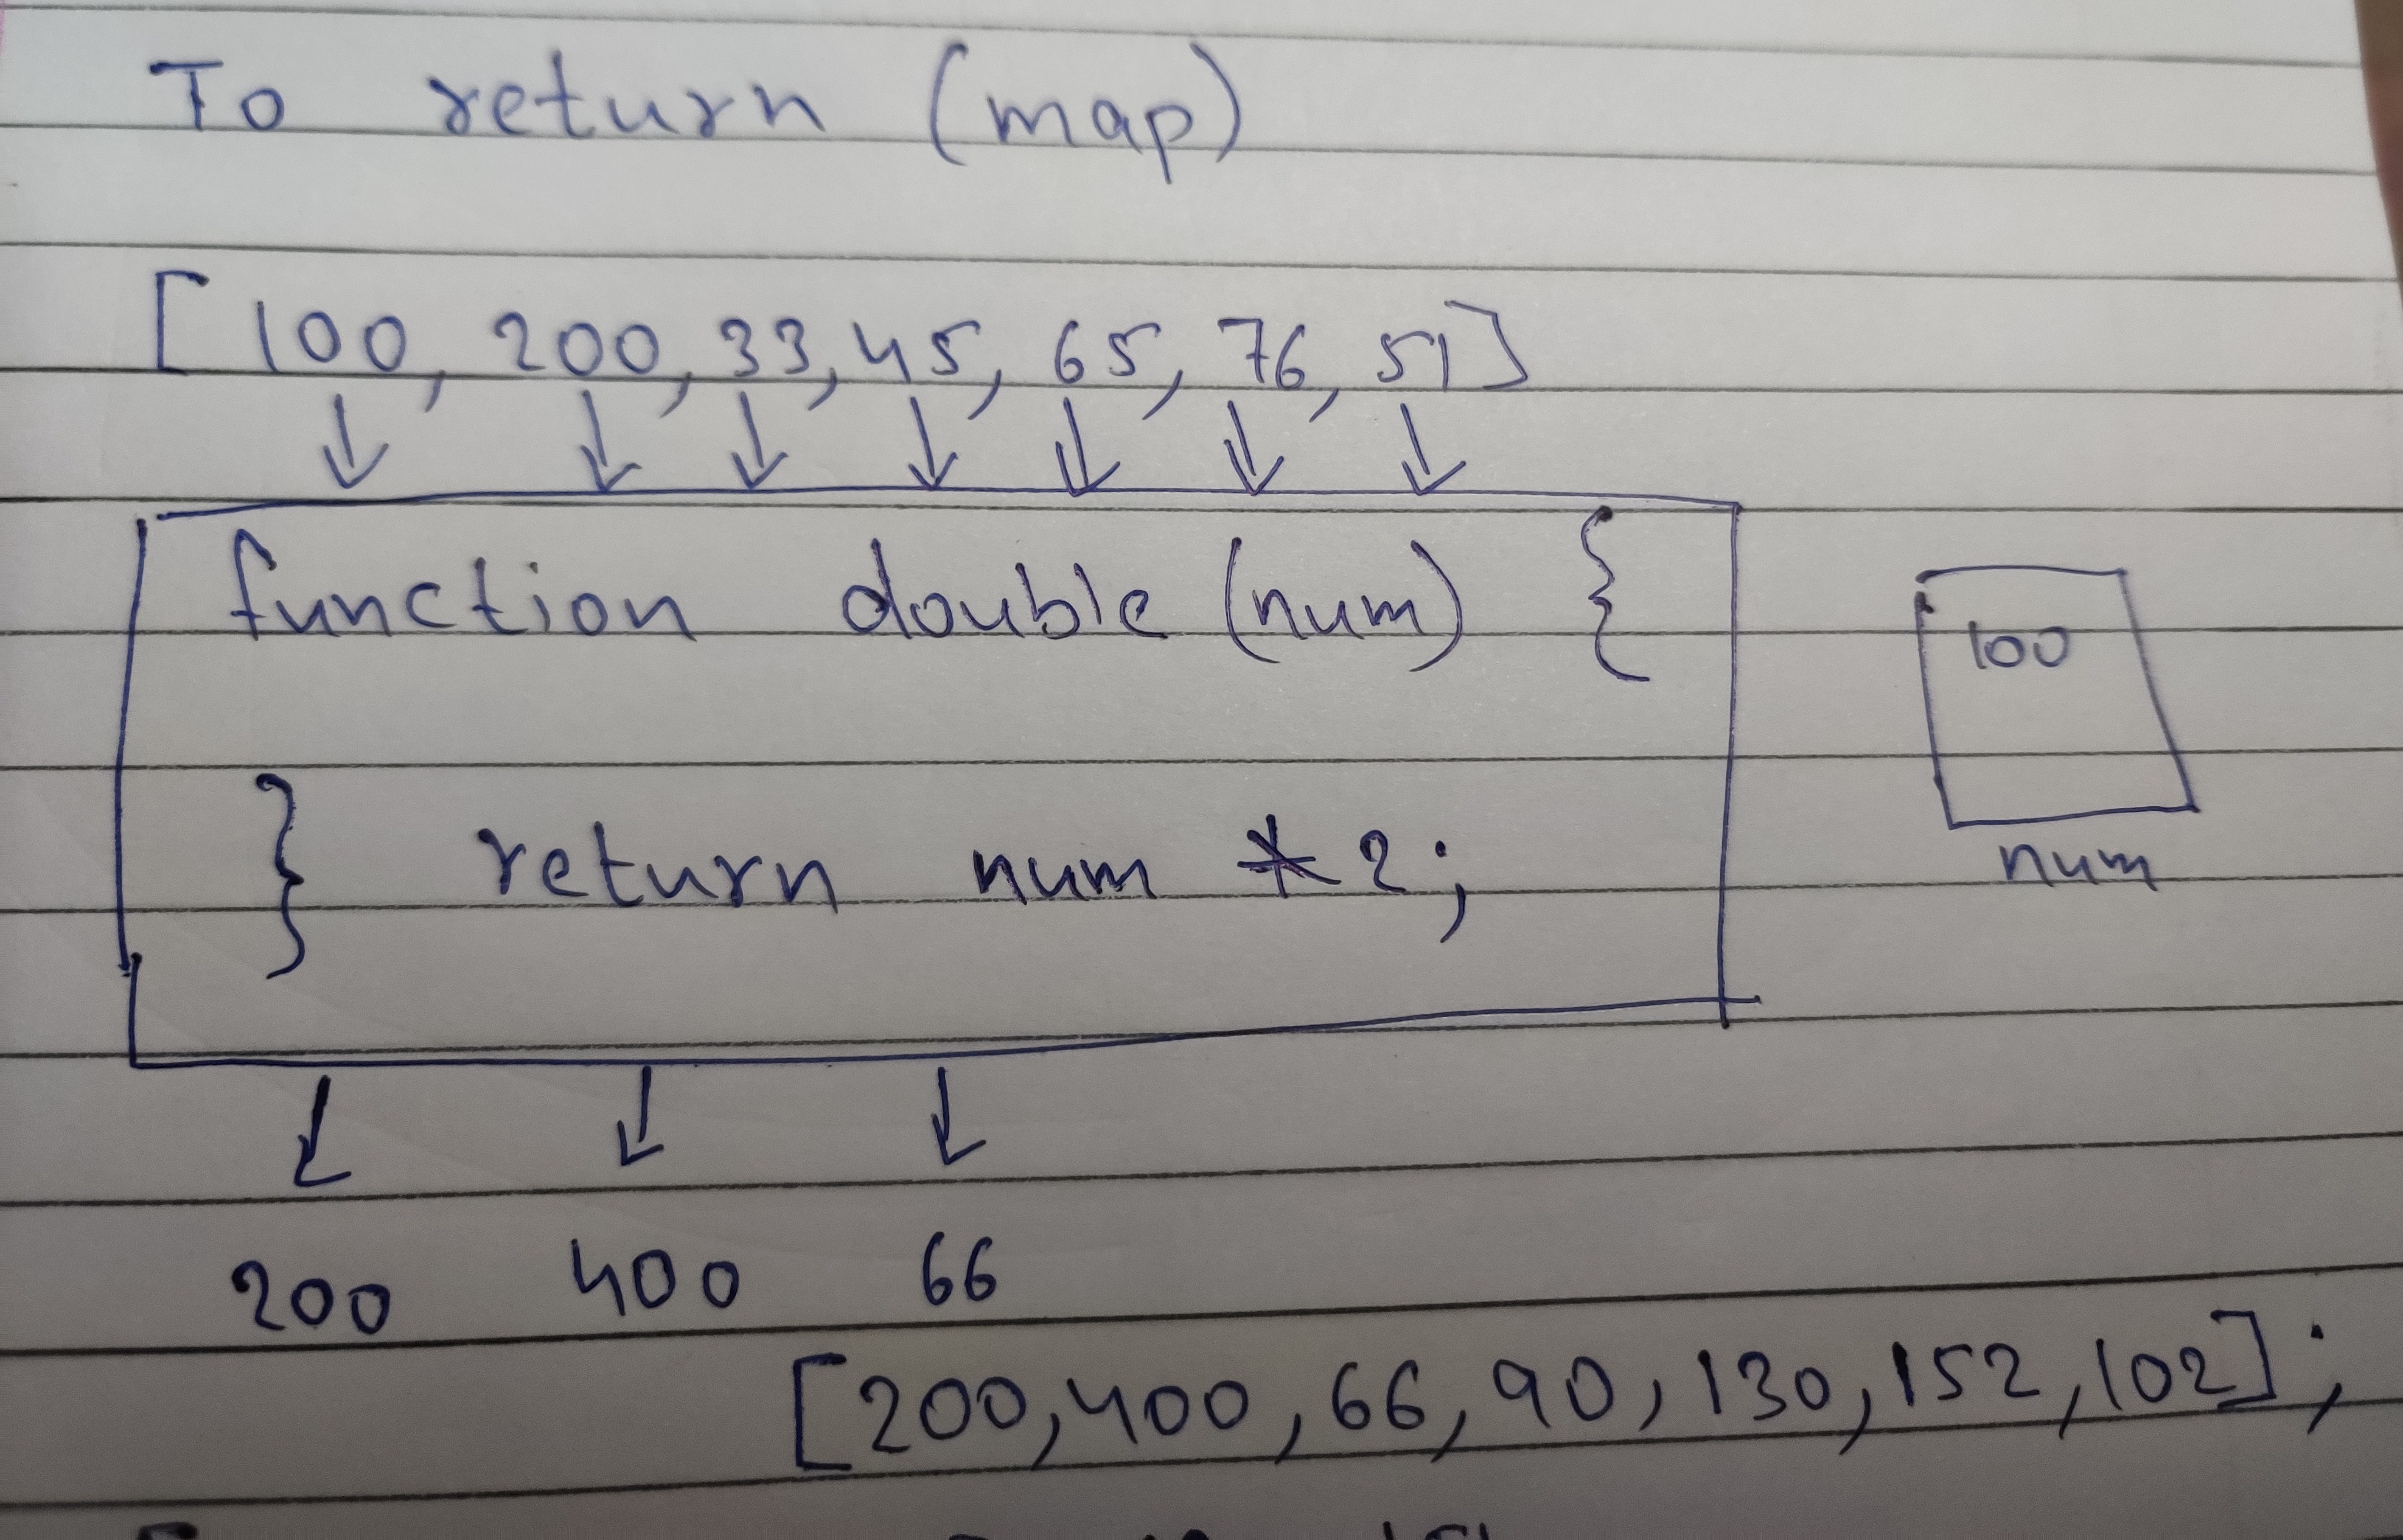 To return (map)
[100, 200, 33, 45, 65, 76, 51]
function double (num) {
100
} return num * 2;
num
200 400 66
[200, 400, 66, 90, 130, 152, 102];